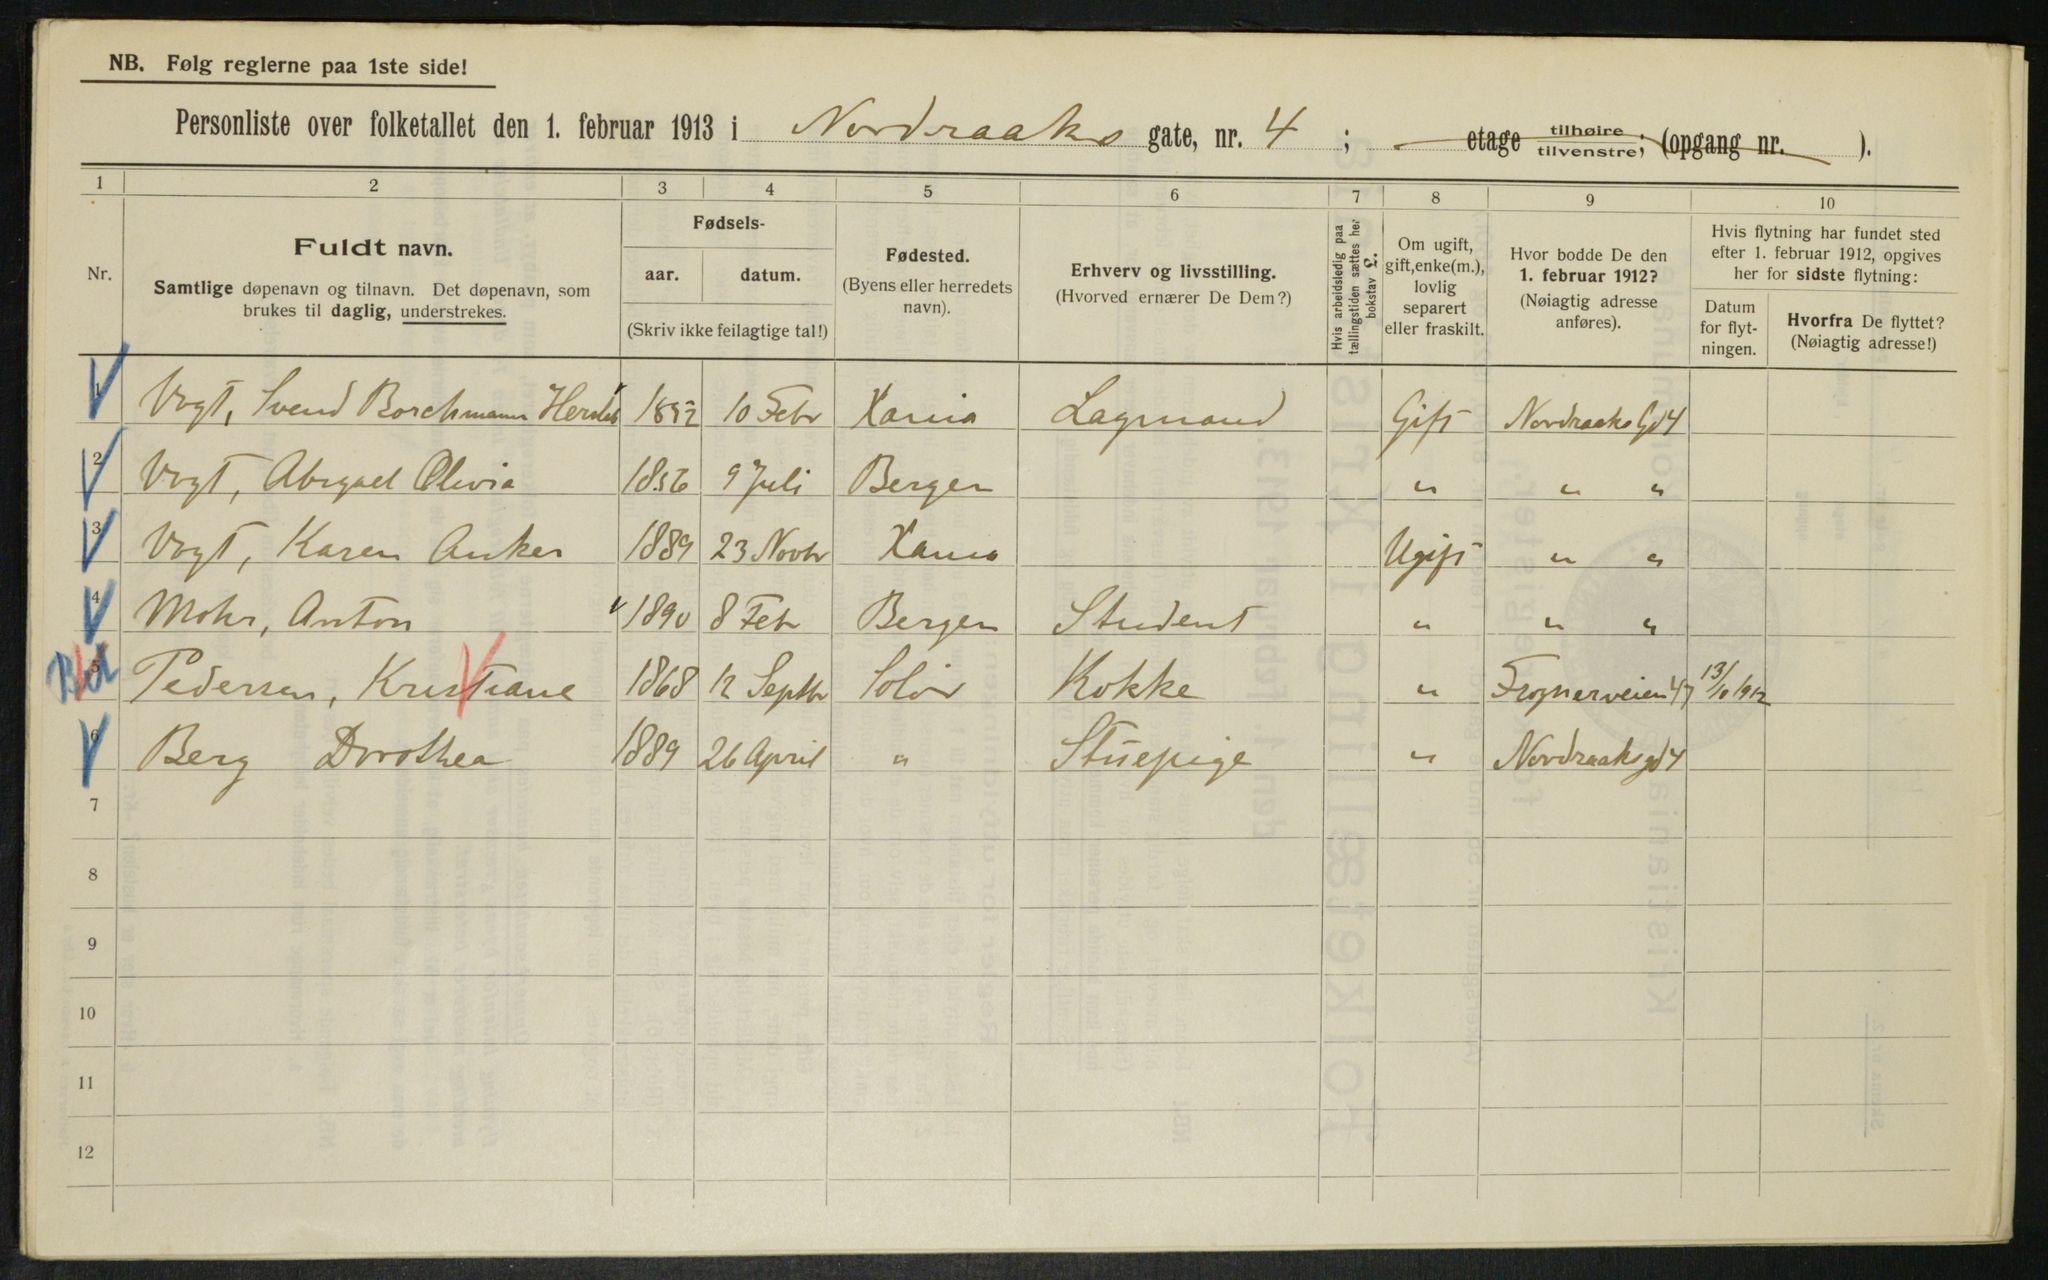 NB. Følg reglerne paa 1ste side!
Personliste over folketallet den 1. februar 1913 i Nordraaks gate, nr. 4 ; etage tilhøire tilvenstre; (opgang nr. ).
1 2 3 4 5 6 7 8 9 10
Nr.
Fuldt navn.
Samtlige døpenavn og tilnavn. Det døpenavn, som
brukes til daglig, understrekes.
Fødsels-
aar. datum.
(Skriv ikke feilagtige tal!)
Fødested.
(Byens eller herredets
navn).
Erhverv og livsstilling.
(Hvorved ernærer De Dem?)
Hvis arbeidsledig paa
tællingstiden sættes her
bokstav L.
Om ugift,
gift, enke(m.),
lovlig
separert
eller fraskilt.
Hvor bodde De den
1. februar 1912?
(Nøiagtig adresse
anføres).
Hvis flytning har fundet sted
efter 1. februar 1912, opgives
her for sidste flytning:
Datum
for flyt-
ningen.
Hvorfra De flyttet?
(Nøiagtig adresse!)
1 Vogt, Svend Borchmann Hersleb 1852 10 Febr Xania Lagmand Gift Nordraaks Gd 4
2 Vogt, Abigael Olivia 1856 9 Juli Bergen " " "
3 Vogt, Karen Anker 1889 23 Novbr Xania Ugift " "
4 Mohr, Anton 1890 8 Febr Bergen Student " " "
5 Pedersen, Kristiane 1868 12 Septbr Solør Kokke " Frognerveien 47 13/10 1912
6 Berg Dorothea 1889 26 April " Stuepige " Nordraaks gd 4
7
8
9
10
11
12